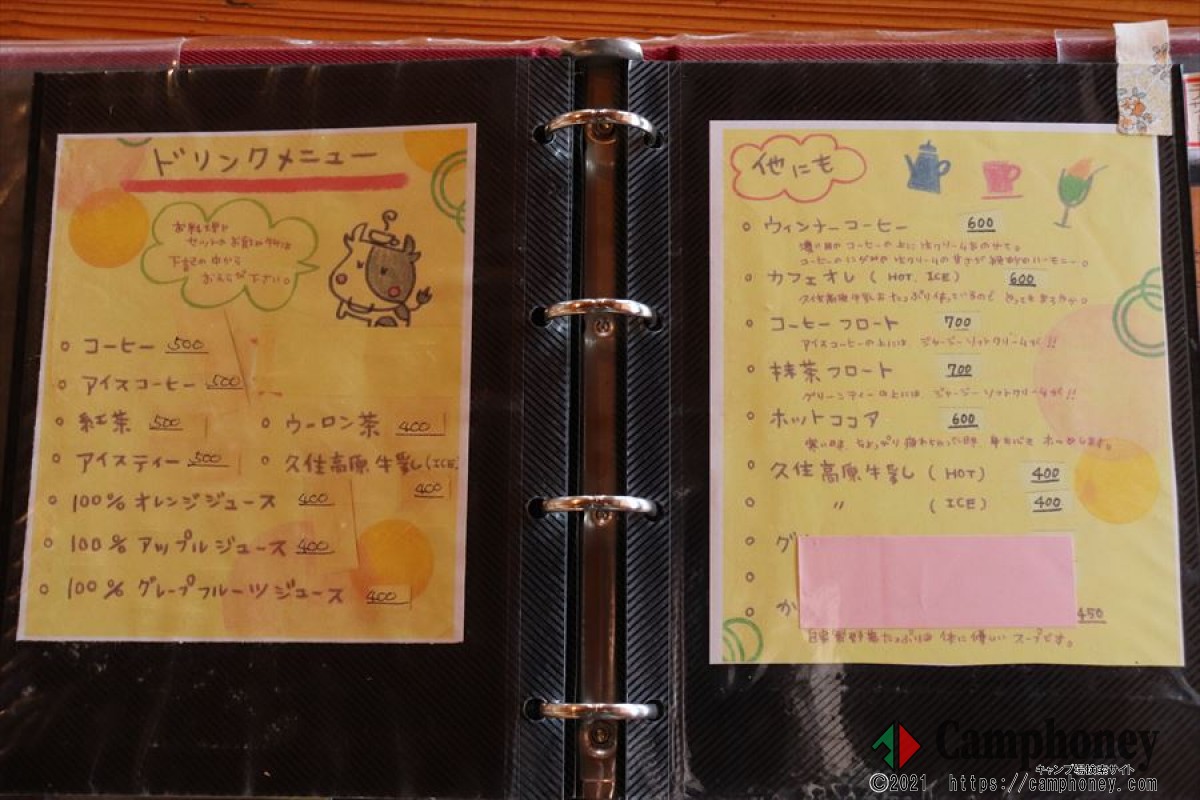 ドリンクメニュー
お料理と
セットのお飲み物は
下記の中から
おえらび下さい。
○ コーヒー 500
○ アイスコーヒー 500
○ 紅茶 500
○ ウーロン茶 400
○ アイスティー 500
○ 久住高原牛乳(ICE)
400
○ 100% オレンジジュース 400
○ 100% アップルジュース 400
○ 100% グレープフルーツジュース 400
他にも
○ ウィンナーコーヒー 600
濃い目のコーヒーの上に生クリームをのせて。
コーヒーのにがみと生クリームの甘さが絶妙のハーモニー。
○ カフェオレ ( HOT, ICE ) 600
久住高原牛乳をたっぷり使っているので とってもまろやか。
○ コーヒーフロート 700
アイスコーヒーの上には ジャージーソフトクリームが!!
○ 抹茶フロート 700
グリーンティーの上には ジャージーソフトクリームが!!
○ ホットココア 600
寒い日は、ちょっぴり
○ 久住高原牛乳 ( HOT ) 400
○ 〃 ( ICE ) 400
○ グ
○
○ か 450
自家製野菜たっぷりの 体に優しい スープです。
Camphoney
キャンプ場検索サイト
©2021 https://camphoney.com